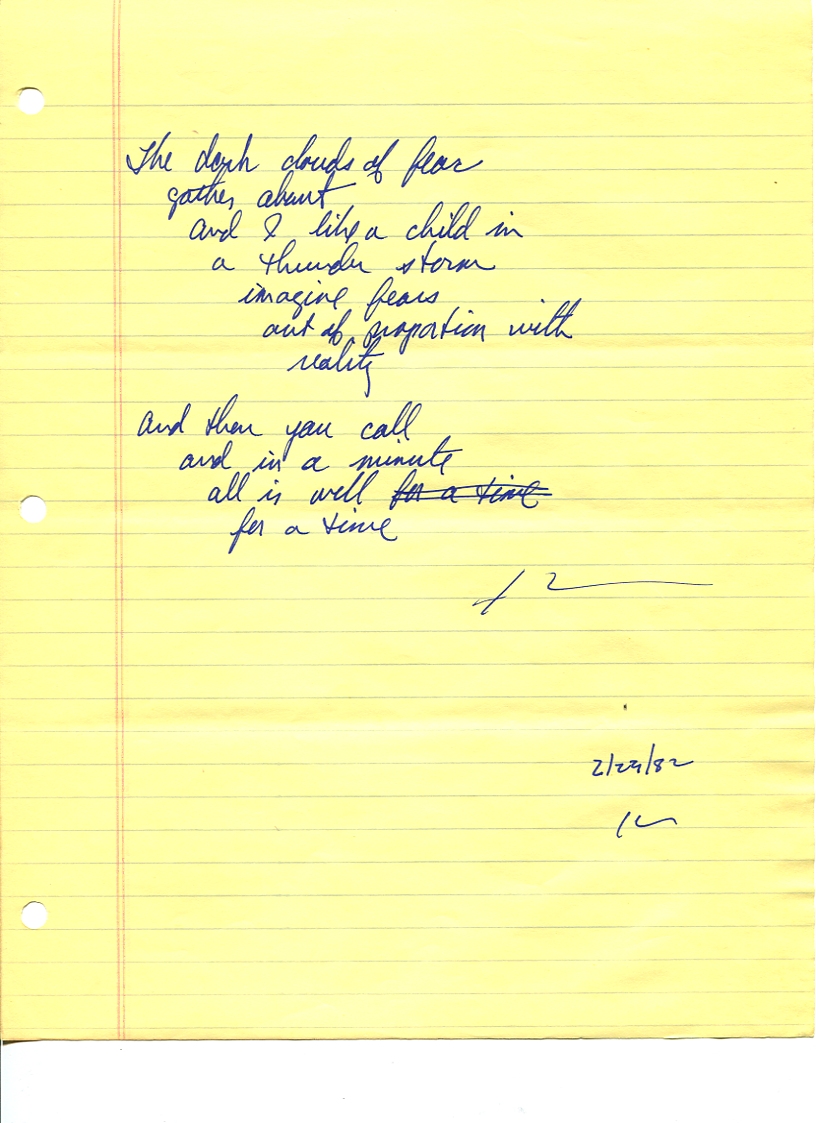 The dark clouds of fear
gather about
and I like a child in
a thunder storm
imagine fears
out of proportion with
reality
And then you call
and in a minute
all is well for a time
for a time
2/29/82